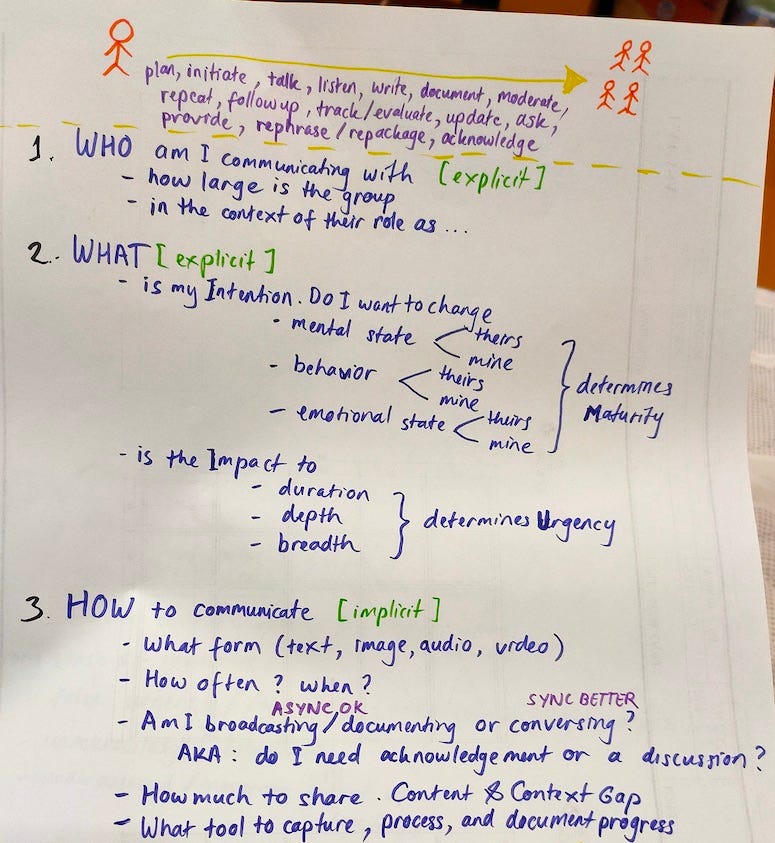 plan, initiate, talk, listen, write, document, moderate,
repeat, follow up, track/evaluate, update, ask,
provide, rephrase/repackage, acknowledge
1. WHO am I communicating with [explicit]
- how large is the group
- in the context of their role as ...
2. WHAT [explicit]
- is my Intention. Do I want to change
- mental state < theirs
mine
- behavior < theirs
mine
- emotional state < theirs
mine
} determines
Maturity
- is the Impact to
- duration
- depth
- breadth
} determines Urgency
3. HOW to communicate [implicit]
- What form (text, image, audio, video)
- How often? when?
ASYNC OK SYNC BETTER
- Am I broadcasting/documenting or conversing?
AKA: do I need acknowledgement or a discussion?
- How much to share. Content & Context Gap
- What tool to capture, process, and document progress